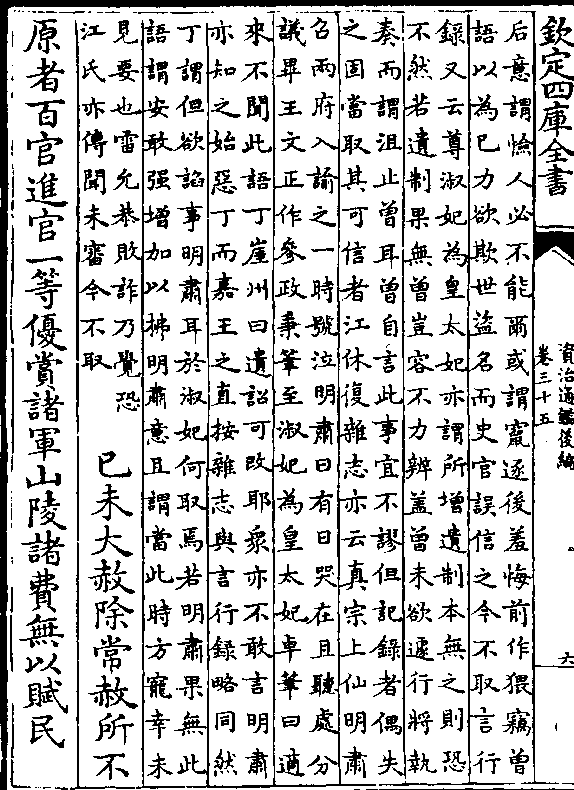 欽定四庫全書
資治通鑑後編
卷三十五
六
后意謂憸人必不能爾或謂竄逐後羞悔前作猥竊曾
語以為已力欲欺世盜名而史官誤信之今不取言行
錄又云尊淑妃為皇太妃亦謂所增遺制本無之則恐
不然若遺制果無曾豈容不力辨蓋曾未欲遽行將執
奏而謂沮止曾耳曾自言此事宜不謬但記錄者偶失
之固當取其可信者江休復雜志亦云真宗上仙明肅
召兩府入諭之一時號泣明肅曰有日哭在且聽處分
議畢王文正作參政秉筆至淑妃為皇太妃卓筆曰適
來不聞此語丁崖州曰遺詔可改耶衆亦不敢言明肅
亦知之始惡丁而嘉王之直按雜志與言行錄略同然
丁謂但欲諂事明肅耳於淑妃何取焉若明肅果無此
語謂安敢强增加以拂明肅意且謂當此時方寵幸未
見要也雷允恭敗詐乃覺恐
江氏亦傳聞未審今不取
已未大赦除常赦所不
原者百官進官一等優賞諸軍山陵諸費無以賦民